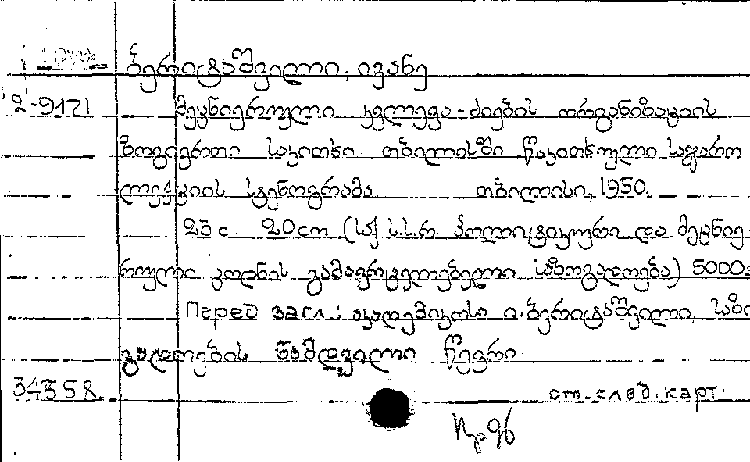 ბერიტაშვილი, ივანე
2-9171 მეცნიერული კვლევა-ძიების ორგანიზაციის
ზოგიერთი საკითხი. თბილისში წაკითხული საჯარო
ლექციის სტენოგრამა თბილისი, 1950.
23 с 20 cm (საქ. სს რ პოლიტიკური და მეცნიე-
რული ცოდნის გამავრცელებელი საზოგადოება) 5000
Перед загл.: აკადემიკოსი ი. ბერიტაშვილი, საზო
გადოების ნამდვილი წევრი.
34358 от. след. карт.
96